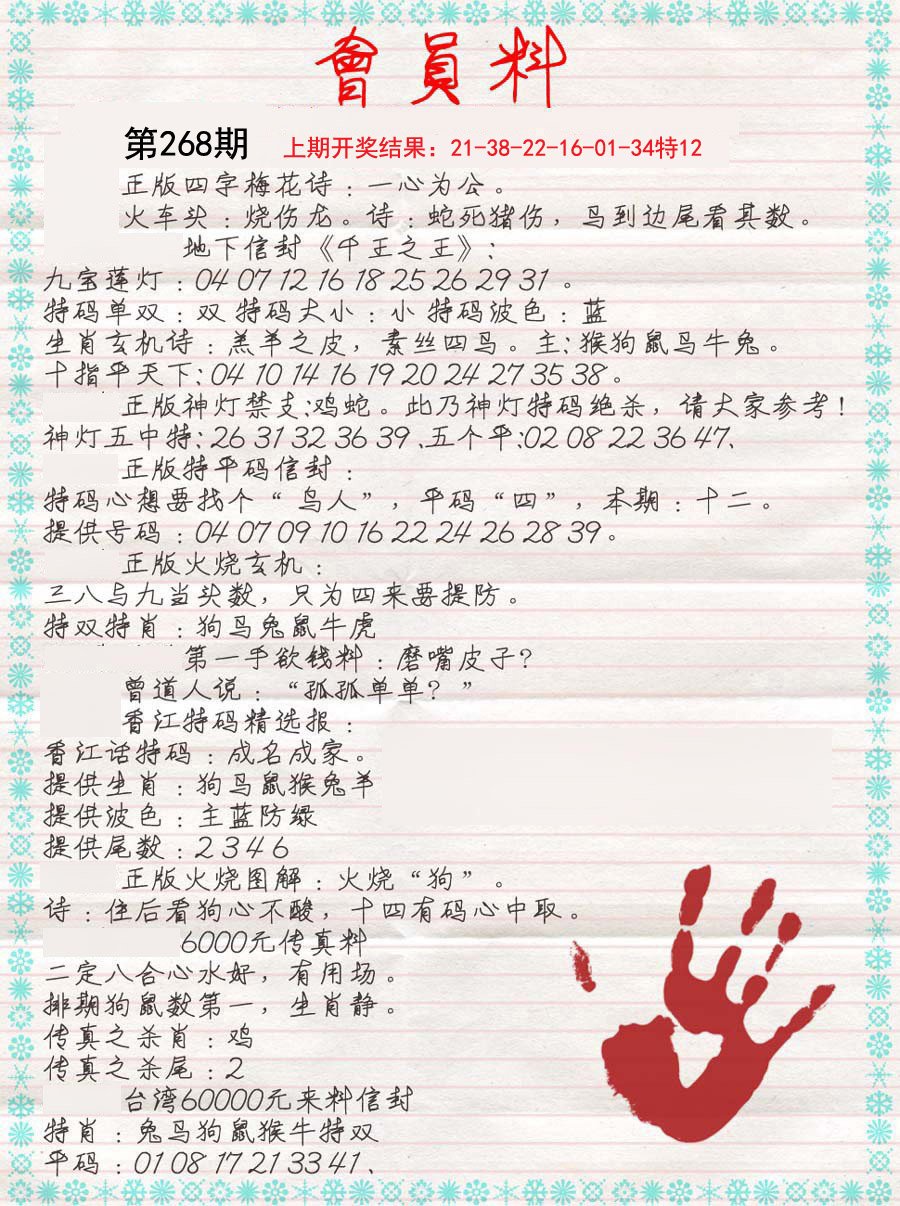 會員料
第268期 上期开奖结果：21-38-22-16-01-34特12
正版四字梅花诗：一心为公。
火车头：烧伤龙。诗：蛇死猪伤，鸟到边尾看其数。
地下信封《千王之王》：
九宝莲灯：04 07 12 16 18 25 26 29 31 。
特码单双：双 特码大小：小 特码波色：蓝
生肖玄机诗：羔羊之皮，素丝四鸟。主：猴狗鼠鸟牛兔。
十指平天下：04 10 14 16 19 20 24 27 35 38。
正版神灯禁支：鸡蛇。此乃神灯特码绝杀，请大家参考！
神灯五中特：26 31 32 36 39 、五个平：02 08 22 36 47、
正版特平码信封：
特码心想要找个“鸟人”，平码“四”，本期：十二。
提供号码：04 07 09 10 16 22 24 26 28 39。
正版火烧玄机：
三八与九当头数，只为四来要提防。
特双特肖：狗鸟兔鼠牛虎
第一手欲钱料：磨嘴皮子？
曾道人说：“孤孤单单？”
香江特码精选报：
香江话特码：成名成家。
提供生肖：狗鸟鼠猴兔羊
提供波色：主蓝防绿
提供尾数：2 3 4 6
正版火烧图解：火烧“狗”。
诗：住后看狗心不酸，十四有码心中取。
6000元传真料
二定八合心水好，有用场。
排期狗鼠数第一，生肖静。
传真之杀肖：鸡
传真之杀尾：2
台湾60000元来料信封
特肖：兔鸟狗鼠猴牛特双
平码：01 08 17 21 33 41 、